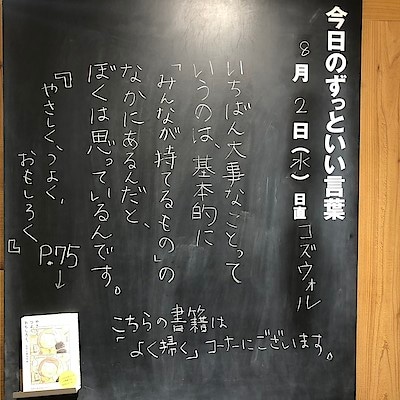 今日のずっといい言葉
8月2日(水)日直 コズウォル
いちばん大事なことって
いうのは、基本的に
「みんなが持てるもの」の
なかにあるんだと、
ぼくは思っているんです。
『やさしく、つよく、
おもしろく。』
P.75→
こちらの書籍は
「よく掃く」コーナーにございます。